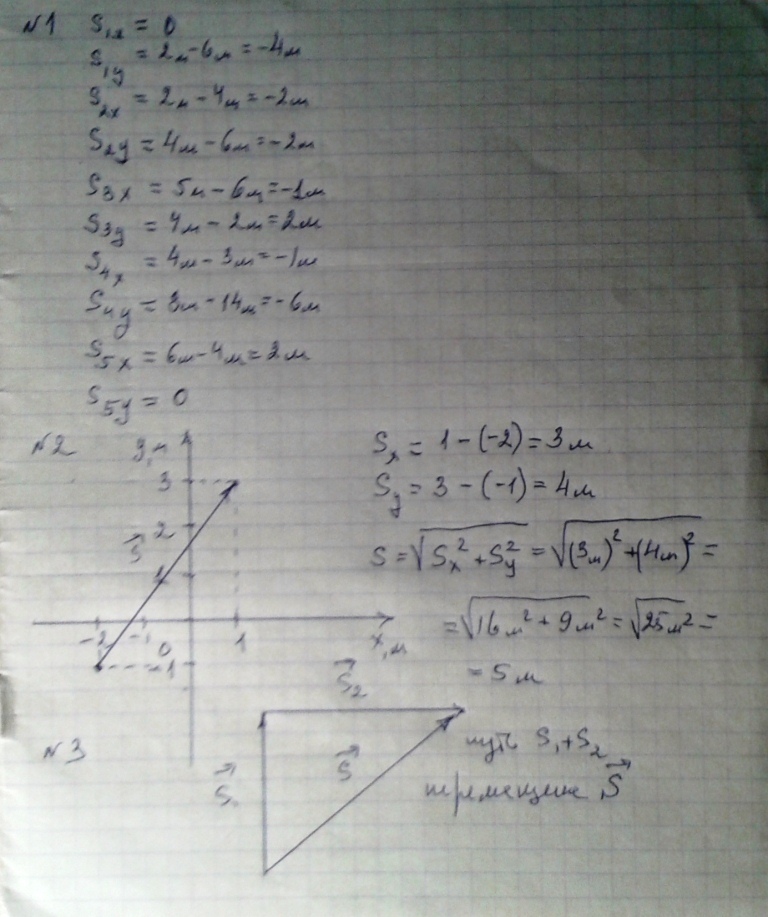 №1 S₁ₓ = 0
S₁y = 2м - 6м = -4м
S₂ₓ = 2м - 4м = -2м
S₂y = 4м - 6м = -2м
S₃ₓ = 5м - 6м = -1м
S₃y = 4м - 2м = 2м
S₄ₓ = 4м - 3м = -1м
S₄y = 8м - 14м = -6м
S₅ₓ = 6м - 4м = 2м
S₅y = 0
№2 y, м
3
2
1
S⃗
-2 -1 0 1 x, м
-1
Sₓ = 1 - (-2) = 3м
Sy = 3 - (-1) = 4м
S = √(Sₓ² + Sy²) = √((3м)² + (4м)²) =
= √(16м² + 9м²) = √(25м²) =
= 5м
№3
S⃗₂
S⃗₁
S⃗
путь S₁ + S₂
перемещение S⃗